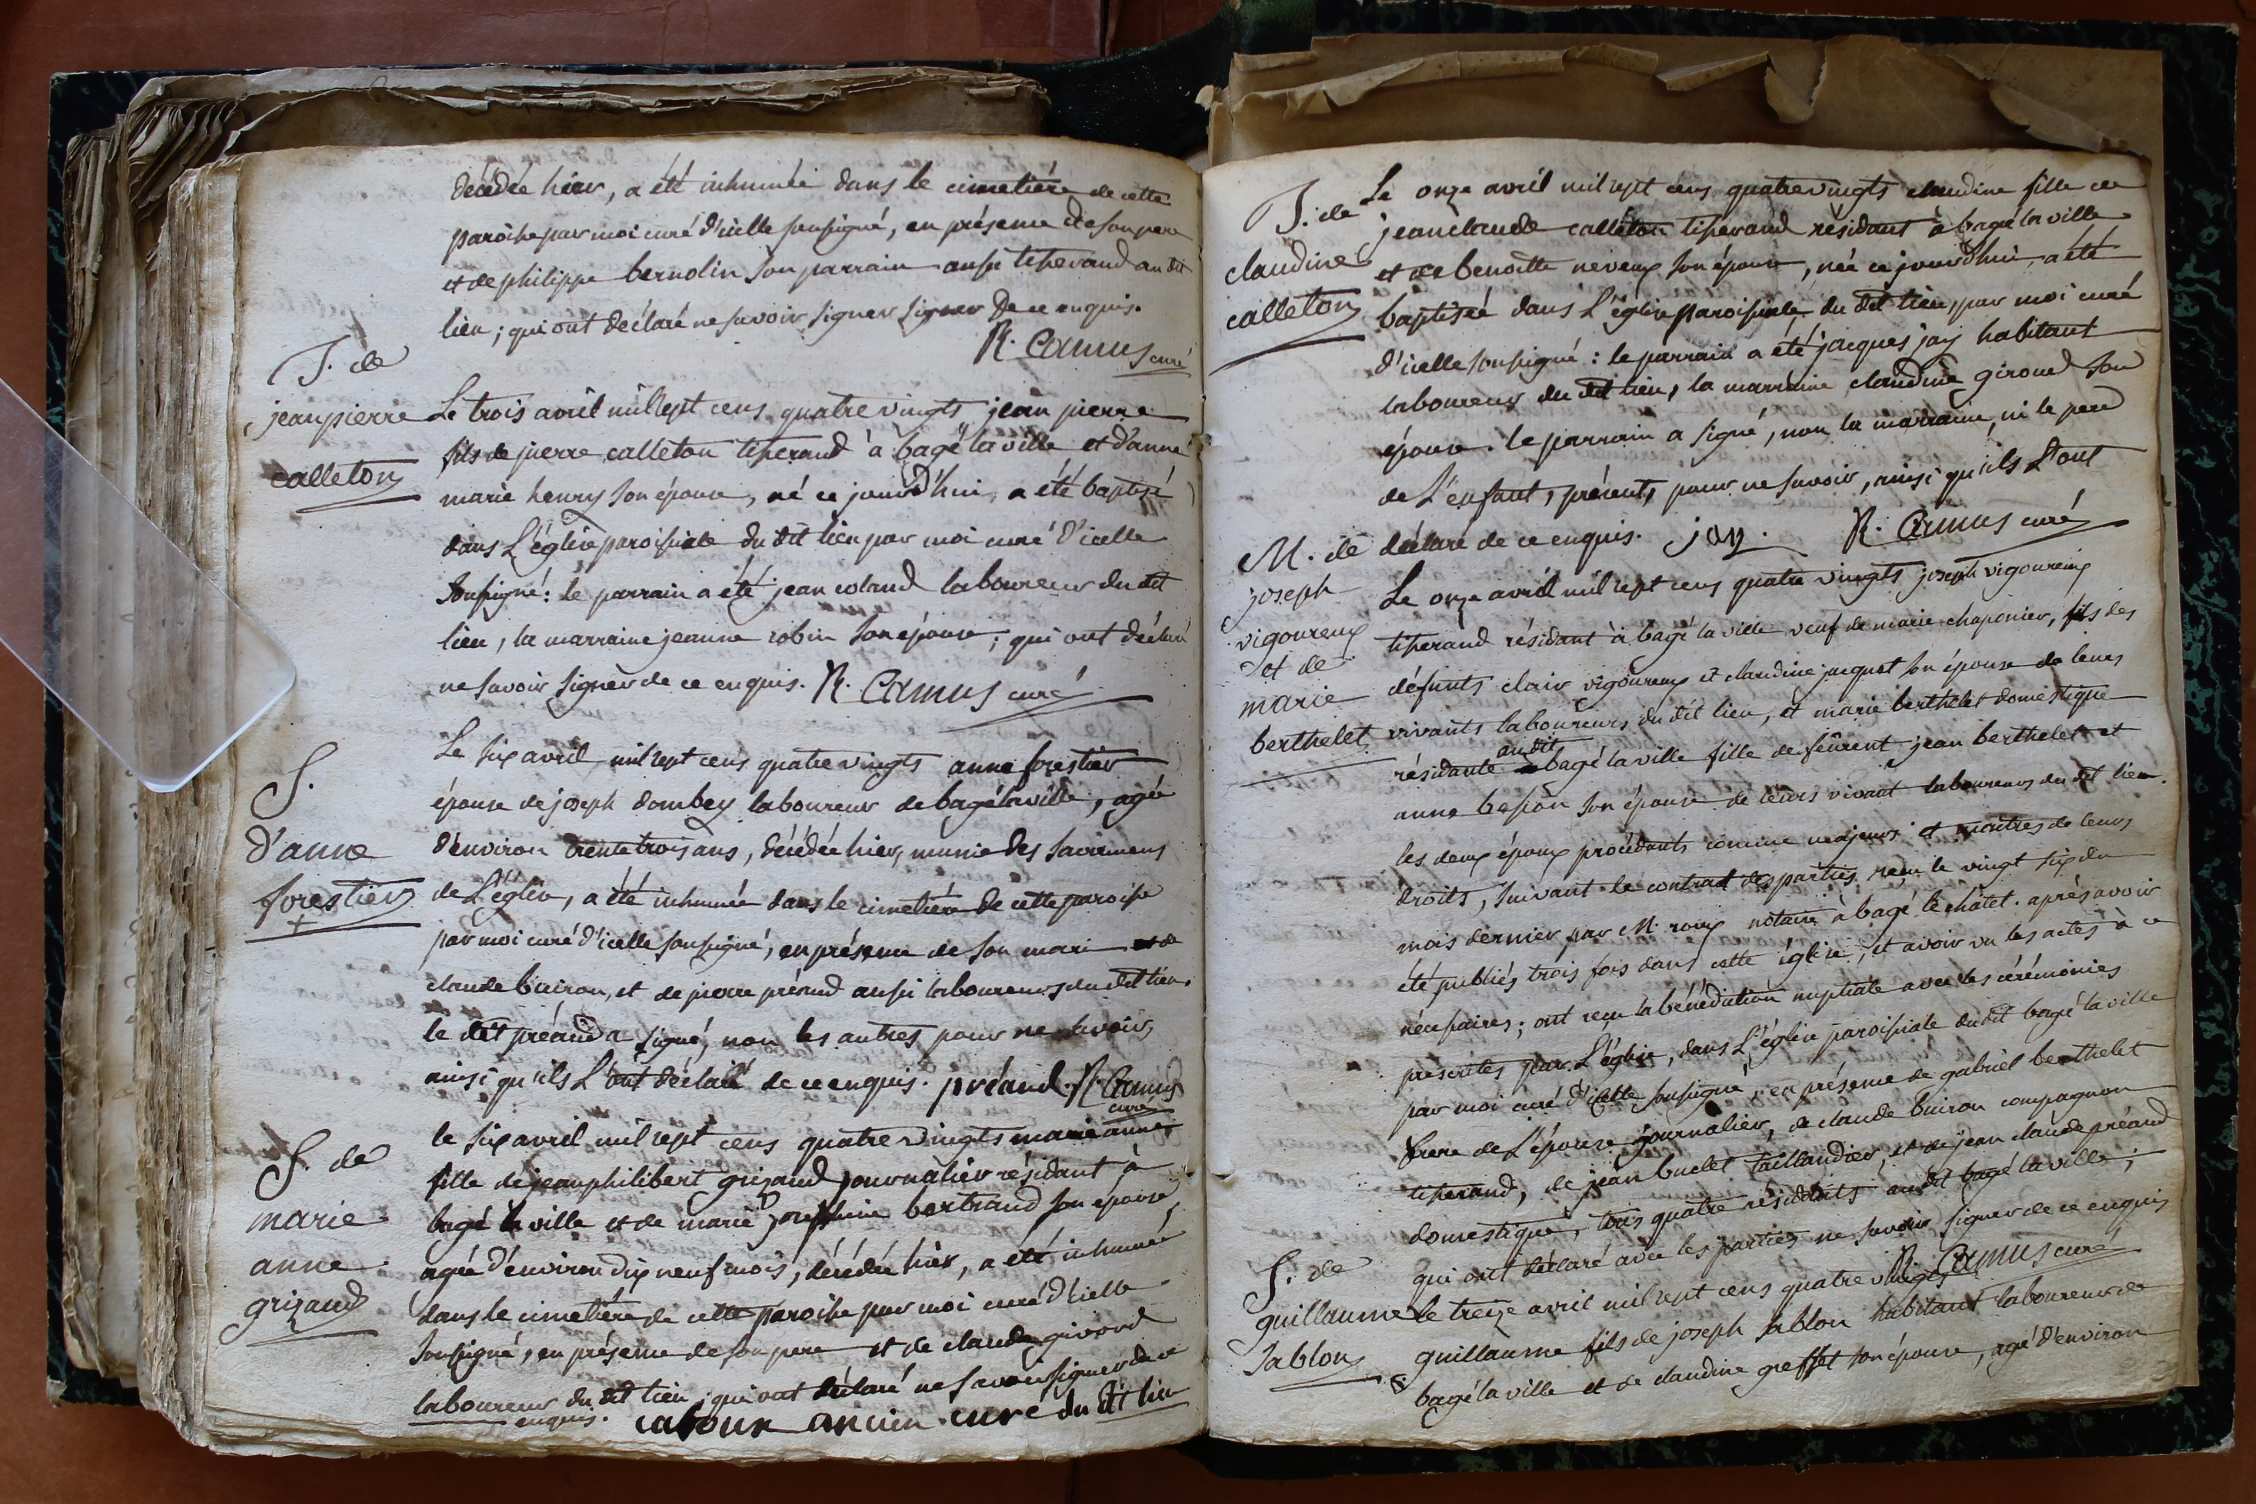 décédée hier, a été inhumée dans le cimetière de cette
paroisse par moi curé d'icelle soussigné, en présence de son pere
et de philippe bernolin son parrain aussi tisserand au dit
lieu; qui ont déclaré ne savoir signer signer de ce enquis.
R. Camus curé
T. de
jean pierre
calleton
Le trois avril mil sept cens quatre vingts jean pierre
fils de pierre calleton tisserand à bagé la ville et d'anne
marie henry son épouse, né ce jourd'hui, a été baptisé
dans L'église paroissiale du dit lieu par moi curé d'icelle
soussigné: le parrain a été jean coland laboureur du dit
lieu, la marraine jeanne robin son épouse; qui ont déclaré
ne savoir signer de ce enquis. R. Camus curé
S.
d'anne
forestier
+
Le six avril mil sept cens quatre vingts anne forestier
épouse de joseph dombey laboureur de bagé la ville, agée
d'environ trente trois ans, décédée hier, munie des sacremens
de L'église, a été inhumée dans le cimetière de cette paroisse
par moi curé d'icelle soussigné, en présence de son mari et de
claude buiron, et de pierre préaud aussi laboureurs du dit lieu.
le dit préaud a signé, non les autres pour ne savoir,
ainsi qu'ils L'ont déclaré de ce enquis. préaud. R. Camus
curé
S. de
marie
anne
grizaud
le six avril mil sept cens quatre vingts marie anne
fille de jean philibert grizaud journalier résidant à
bagé la ville et de marie josephine bertrand son épouse,
agée d'environ dix neuf mois, décédée hier, a été inhumée
dans le cimetière de cette paroisse par moi curé d'icelle
soussigné, en présence de son pere et de claude givord
laboureur du dit lieu; qui ont déclaré ne savoir signer de ce
enquis. ancien curé du dit lieu
T. de
claudine
calleton
Le onze avril mil sept cens quatre vingts claudine fille de
jean claude calleton tisserand résidant à bagé la ville
et de benoitte neveux son épouse, née ce jourd'hui, a été
baptisée dans L'église paroissiale du dit lieu, par moi curé
d'icelle soussigné: le parrain a été jacques jay habitant
laboureur du dit lieu, la marraine claudine giroud son
épouse. le parrain a signé, non la marraine, ni le pere
de L'enfant, présent, pour ne savoir, ainsi qu'ils L'ont
déclaré de ce enquis. jay. R. Camus curé
M. de
joseph
vigoureux
et de
marie
berthelet
Le onze avril mil sept cens quatre vingts joseph vigoureux
tisserand résidant à bagé la ville veuf de marie chaponier, fils des
défunts clair vigoureux et claudine jacquet son épouse de leurs
vivants laboureurs du dit lieu, et marie berthelet domestique
résidante au dit bagé la ville fille de feurent jean berthelet et
anne besson son épouse de leurs vivant laboureurs du dit lieu.
les deux époux procédants comme majeurs et maitres de leurs
droits, suivant le contrat des parties reçu le vingt six du
mois dernier par M. roux notaire à bagé le châtel. après avoir
été publiés trois fois dans cette église, et avoir vu les actes à ce
nécessaires; ont reçu la bénédiction nuptiale avec les cérémonies
prescrites par L'église, dans L'église paroissiale du dit bagé la ville
par moi curé d'icelle soussigné, en présence de gabriel berthelet
frere de L'épouse journalier, de claude buiron compagnon
tisserand, de jean buclet taillandier, et de jean claude préaud
domestique, tous quatre résidants au dit bagé la ville;
qui ont déclaré avec les parties ne savoir signer de ce enquis
R. Camus curé
S. de
guillaume
sablon
le treize avril mil sept cens quatre vingts
guillaume fils de joseph sablon habitant laboureur de
bagé la ville et de claudine greffet son épouse, agé d'environ